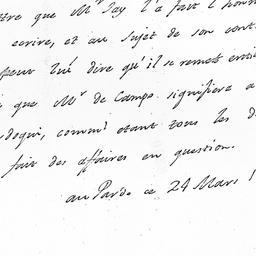 que Mr. Jay l'a fait l'honn
ecrire, et au sujet de son cont
peut lui dire qu'il se remet enti
que Mr. de Campo signifiera a
doqui, comm' etant tous les d
fait des affaires en question.
au Pardo ce 24 Mars